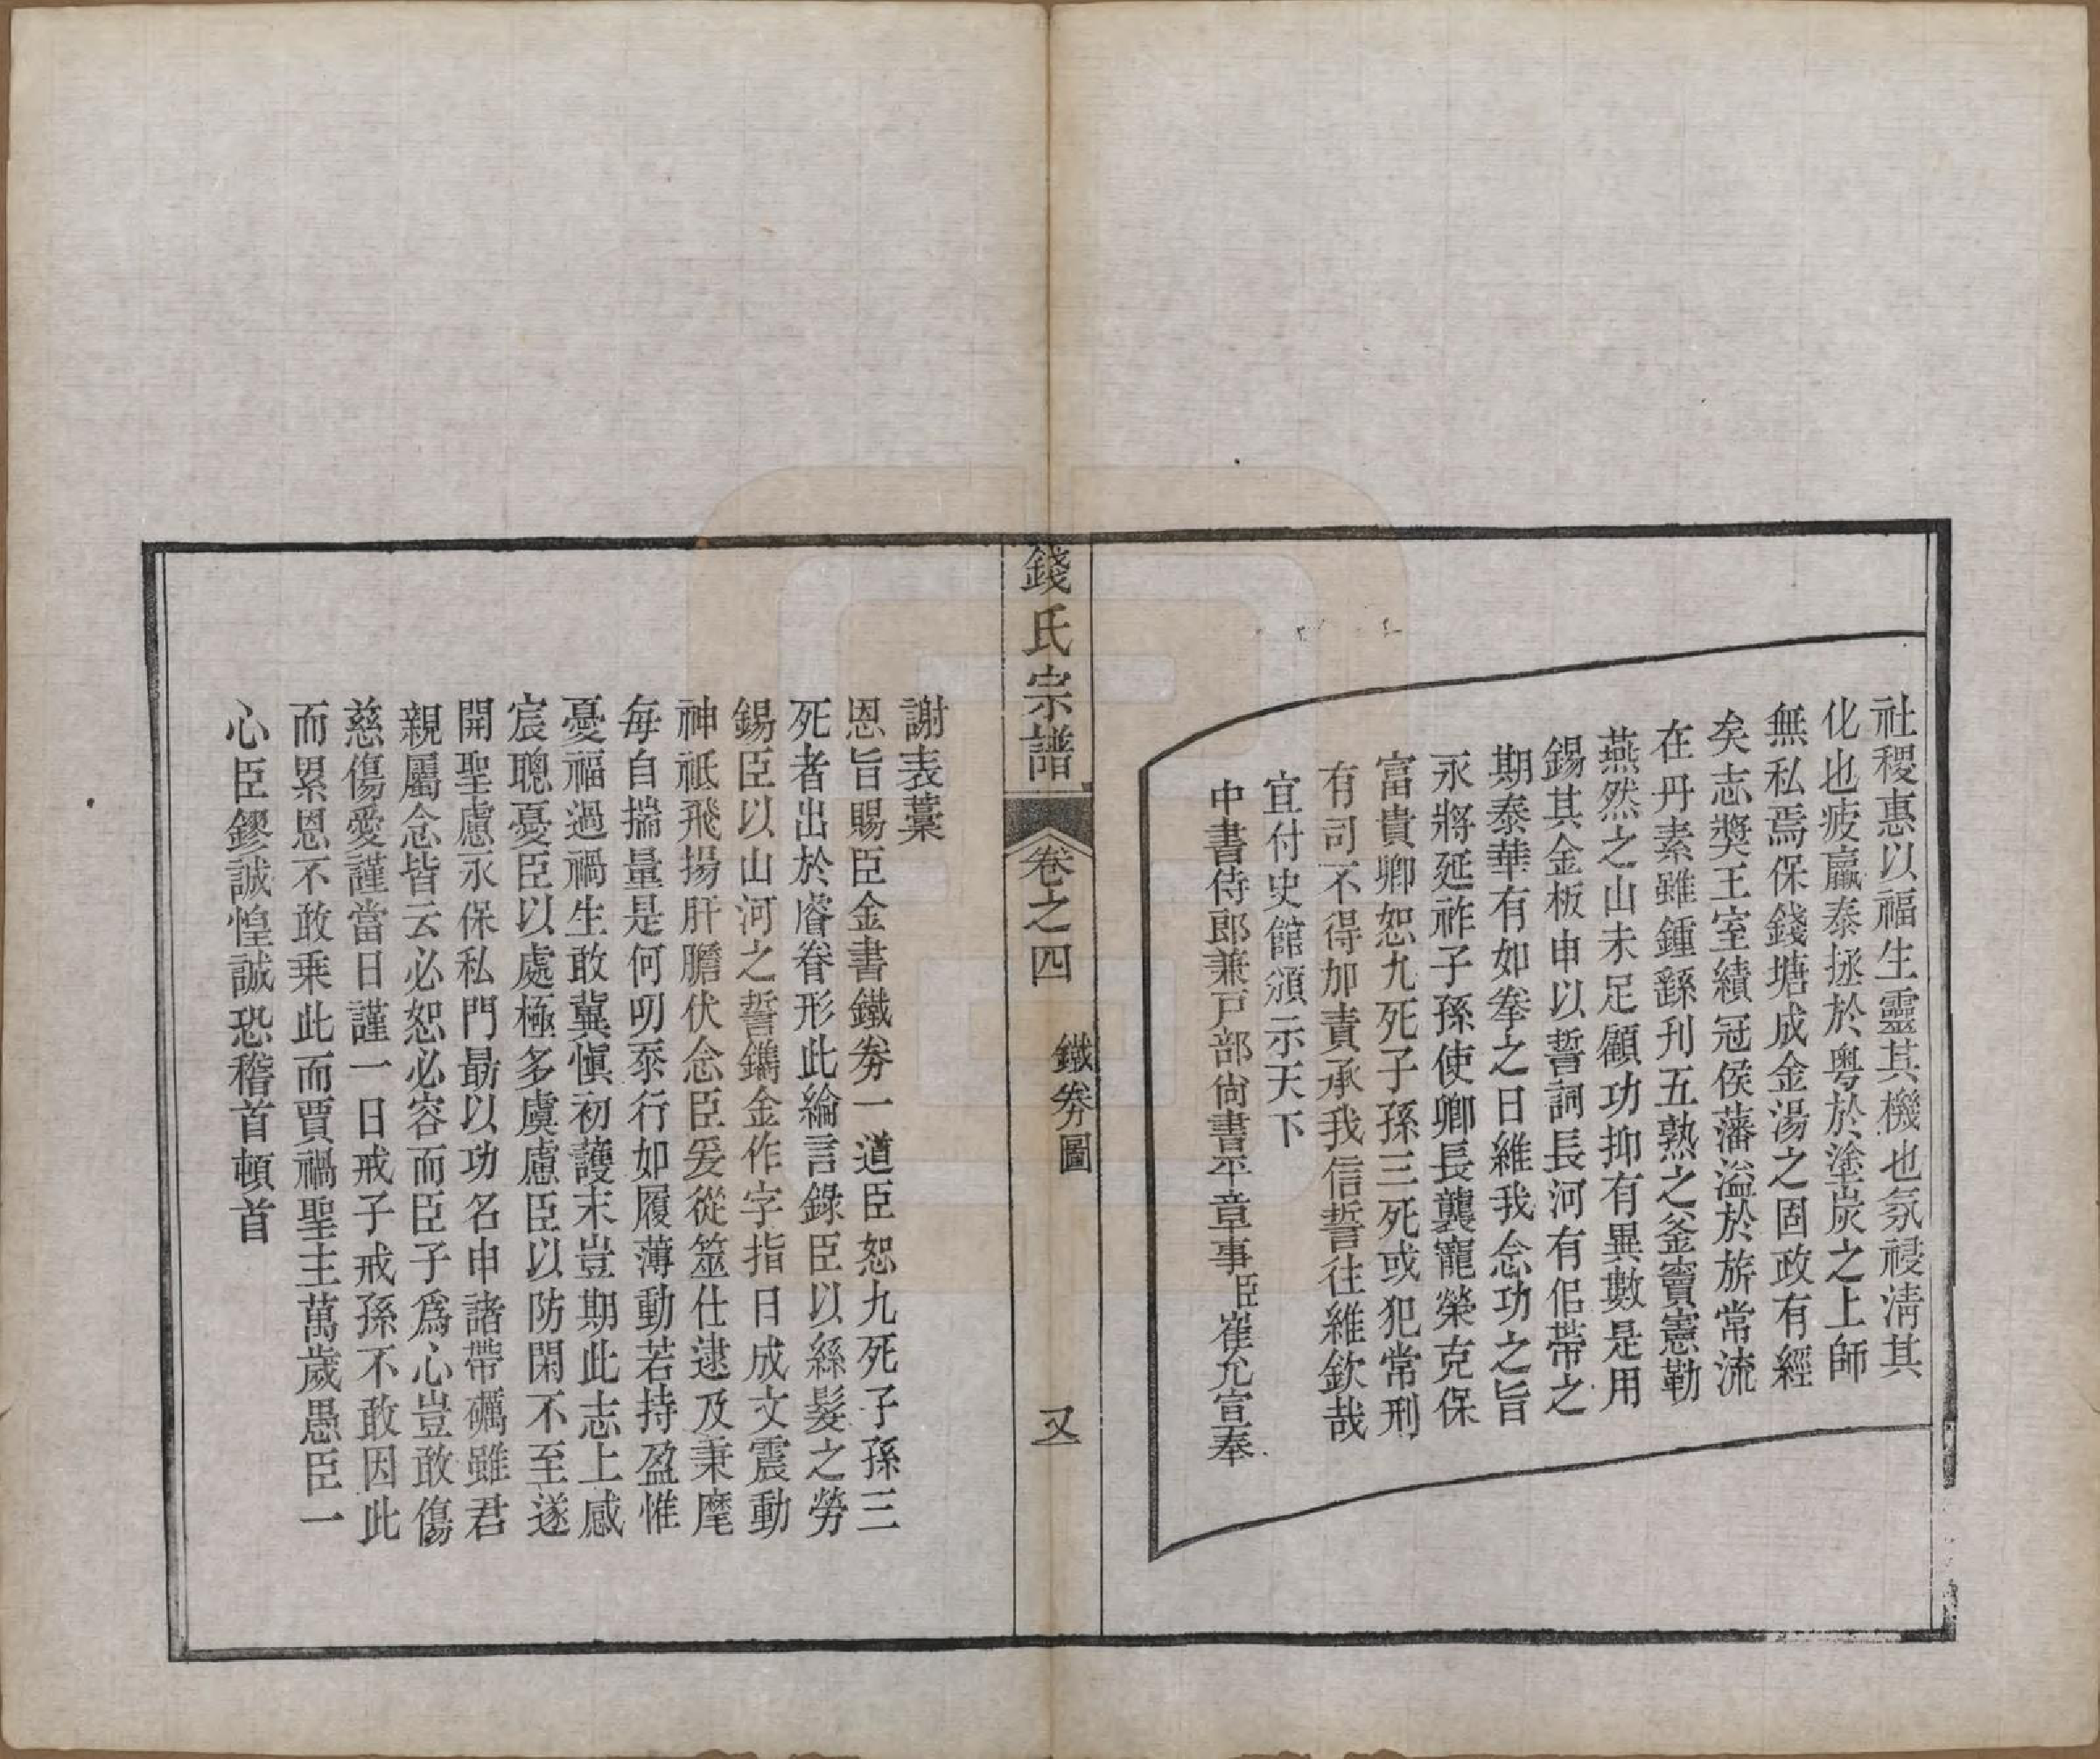 社稷惠以福生靈其機也氛祲淸其
化也疲羸泰拯於粵於塗炭之上師
無私焉保錢塘成金湯之固政有經
矣志奬王室績冠侯藩溢於旂常流
在丹素雖鍾繇刊五熟之釜竇憲勒
燕然之山未足顧功抑有異數是用
錫其金板申以誓詞長河有侶帶之
期泰華有如拳之日維我念功之旨
永將延祚子孫使卿長襲寵榮克保
富貴卿恕九死子孫三死或犯常刑
有司不得加責承我信誓往維欽哉
宜付史館頒示天下
中書侍郎兼戸部尙書平章事臣崔允宣奉
錢氏宗譜
卷之四
鐵劵圖
又一
謝表藁
恩旨賜臣金書鐵劵一道臣恕九死子孫三
死者出於睿眷形此綸言錄臣以絲髮之勞
錫臣以山河之誓鐫金作字指日成文震動
神祇飛揚肝膽伏念臣爰從筮仕逮及秉麾
每自揣量是何叨忝行如履薄動若持盈惟
憂福過禍生敢冀愼初護末豈期此志上感
宸聰憂臣以處極多虞慮臣以防閑不至遂
開聖慮永保私門勗以功名申諸帶礪雖君
親屬念皆云必恕必容而臣子爲心豈敢傷
慈傷愛謹當日謹一日戒子戒孫不敢因此
而累恩不敢乘此而賈禍聖主萬歲愚臣一
心臣鏐誠惶誠恐稽首頓首